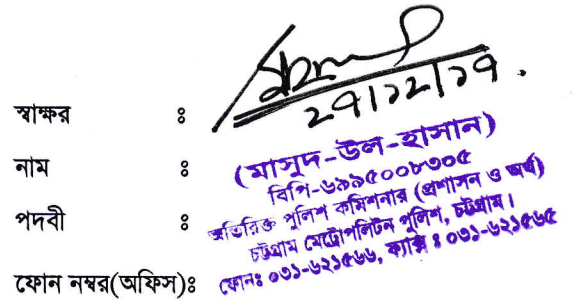 ২৭/১২/১৭.
স্বাক্ষর ঃ
নাম ঃ (মাসুদ-উল-হাসান)
বিপি-৬৯৯৫০০৮৩০৫
পদবী ঃ অতিরিক্ত পুলিশ কমিশনার (প্রশাসন ও অর্থ)
চট্টগ্রাম মেট্রোপলিটন পুলিশ, চট্টগ্রাম।
ফোন নম্বর(অফিস)ঃ ফোনঃ ০৩১-৬২১৫৬৬, ফ্যাক্স ঃ ০৩১-৬২১৫৬৫